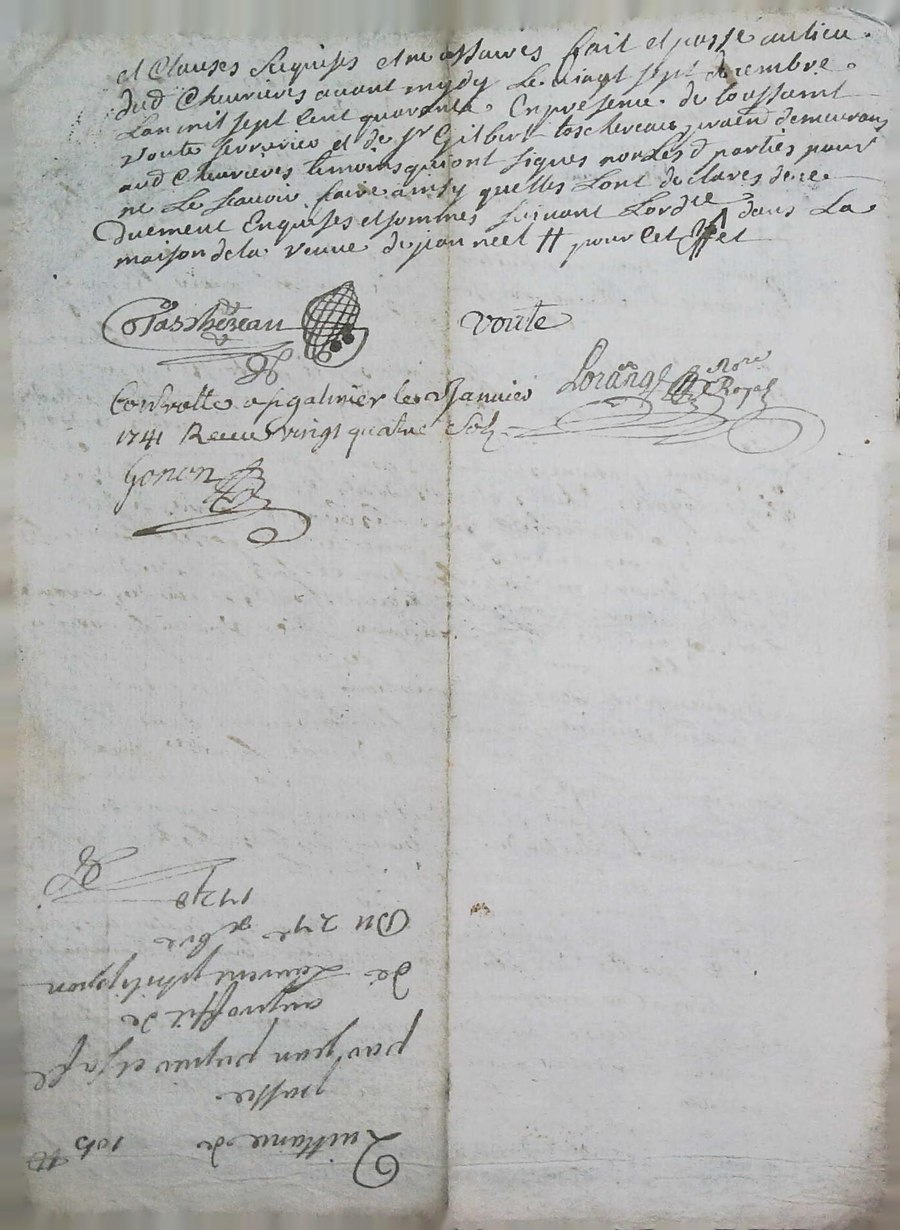 et Clauses Requises et necessaires fait et passé au lieu
dud Chevrieres avant mydy Le vingt sept decembre
Lan mil sept Cent quarante En presence de toussaint
voute serrurier et de Sr Gilbert demeurans
aud Chevrieres temoins qui ont signes non les d parties pour
ne Le scavoir faire ainsy quelles Lont declares de ce
Duement Enquises et sommes suivant Lordre dans La
maison de la veuve de jean neel # pour Cet Effet
voute
Lorange Nore Royal
Controlle a st galmier le Janvier
1741 Receu vingt quatre sols
Gonon
Quittance de
passée
par jean et sa fe
au proffit de
de Laurent philippon
Du 27e xbre
1740